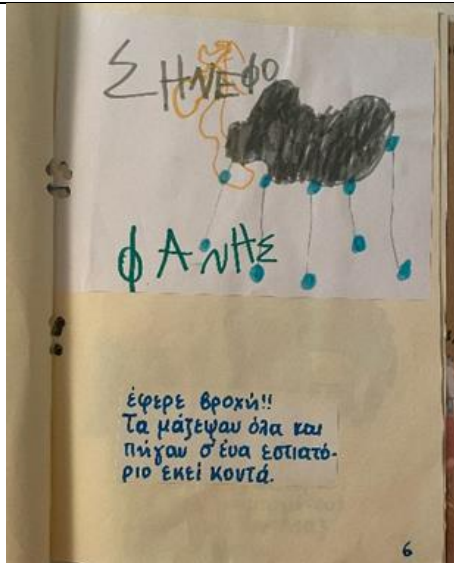 ΣΗΝΕΦΟ
ΦΑΝΗΣ
έφερε βροχή!!
Τα μάζεψαν όλα και
πήγαν σ' ένα εστιατό-
ριο εκεί κοντά.
6